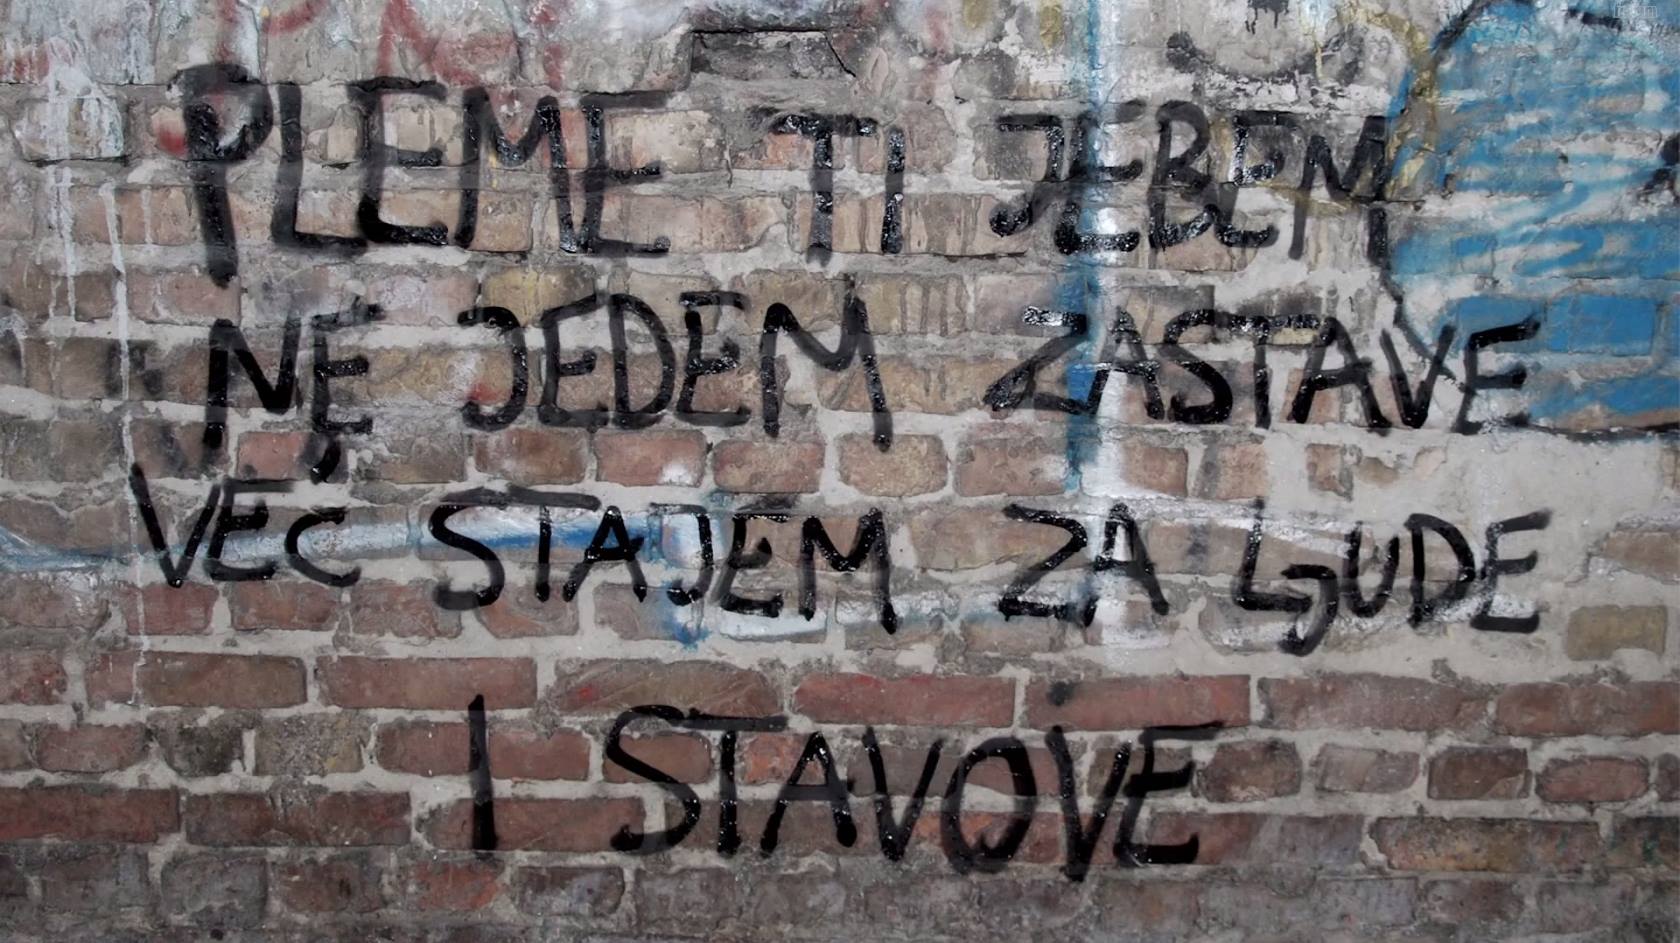 PLEME TI JEBEM
NE JEDEM ZASTAVE
VEC STAJEM ZA LJUDE
I STAVOVE